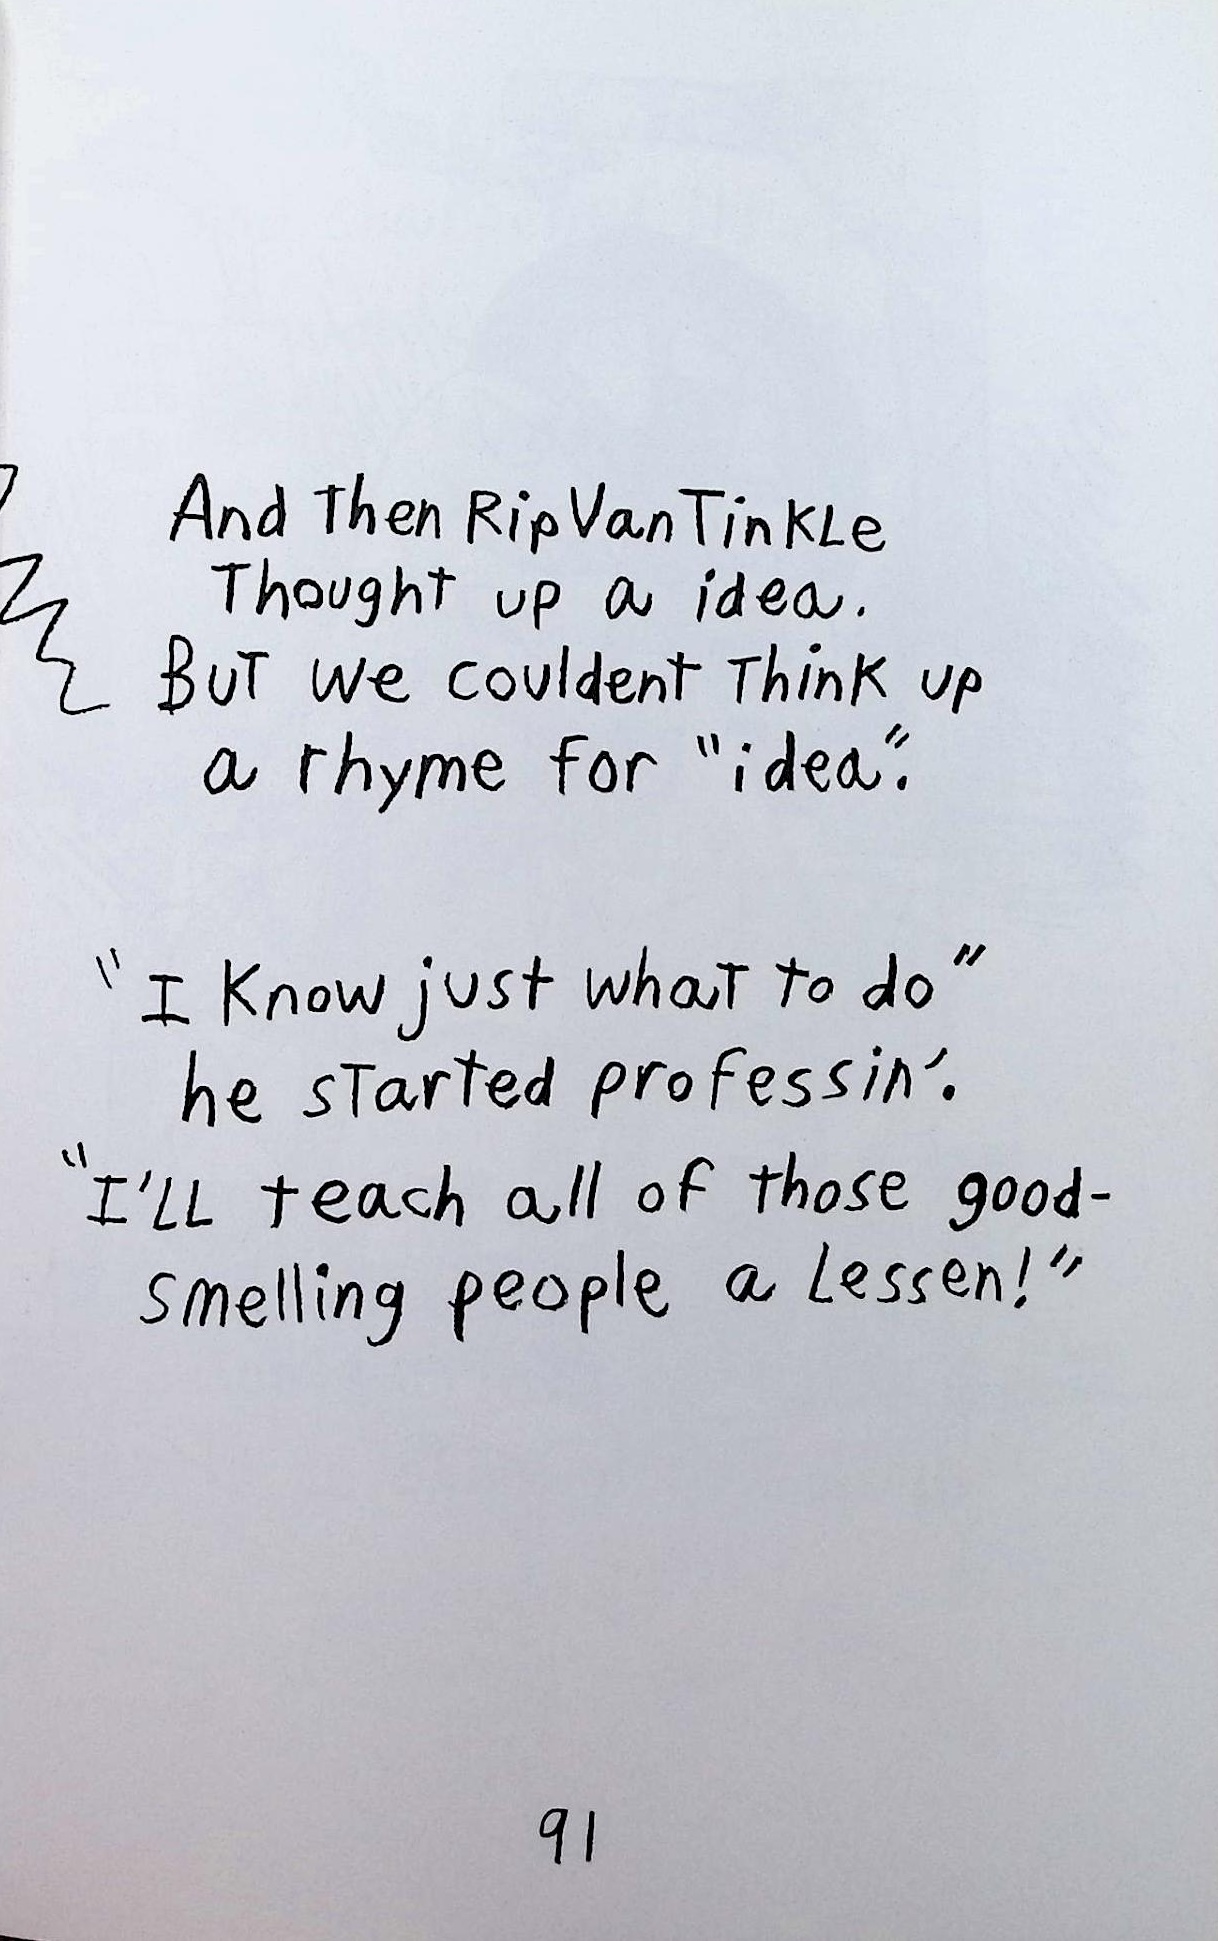 And Then Rip Van Tinkle
Thought up a idea.
But we couldent Think up
a rhyme for "idea".
"I Know just what to do"
he started professin'.
"I'LL teach all of those good-
smelling people a Lessen!"
91